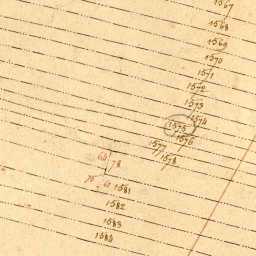 1567
1568
1569
1570
1571
1572
1573
1574
1575
1576
1577
1578
78
1581
1582
1583
1584